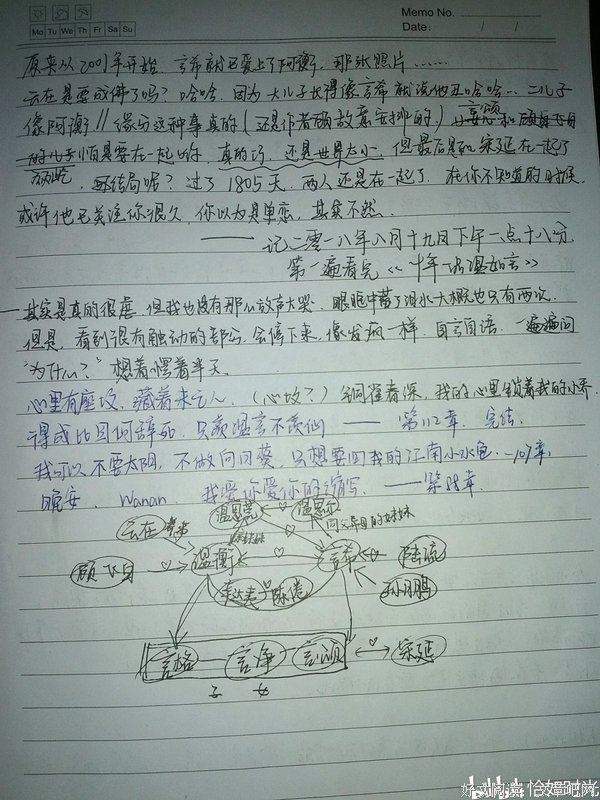 Memo No.
Mo Tu We Th Fr Sa Su
Date: / /
原来从2001年开始,言希就已爱上了阿衡,那张照片……
云在是要成佛了吗?哈哈,因为大儿子长得像言希就说他丑哈哈…二儿子
像阿衡//缘分这种事真的(还是作者故意安排的)言颂和
的儿子怕是要在一起的,真的巧,还是世界太小,但最后是和宋延在一起了
结局呢?过了1805天,两人还是在一起了,在你不知道的时候,
或许他已关注你很久,你以为是单恋,其实不然.
——记二零一八年八月十九日下午一点十八分.
第一遍看完《十年一品温如言》
其实是真的很虐,但我也没有那么放声大哭,眼眶中蓄了泪水大概也只有两次.
但是,看到很有触动的部分,会停下来,像发病一样,自言自语,一遍遍问
“为什么?”想着愣着半天.
心里有座坟,藏着未亡人,(心坟?)铜雀春深,我的心里锁着我的小乔.
得成比目何辞死,只羡温言不羡仙——第112章.完结.
我可以不要太阳,不做向日葵,只想要回我的江南小水龟.--107章,
晚安,Wanan,我爱你爱你的缩写.——第88章.
温思莞 温思尔
云在 同父异母的妹妹
顾飞白 温衡 言希 陆流
李达夫子陈倦 孙鹏
言格 言净 言颂 宋延
子 女
恰嬅吧网